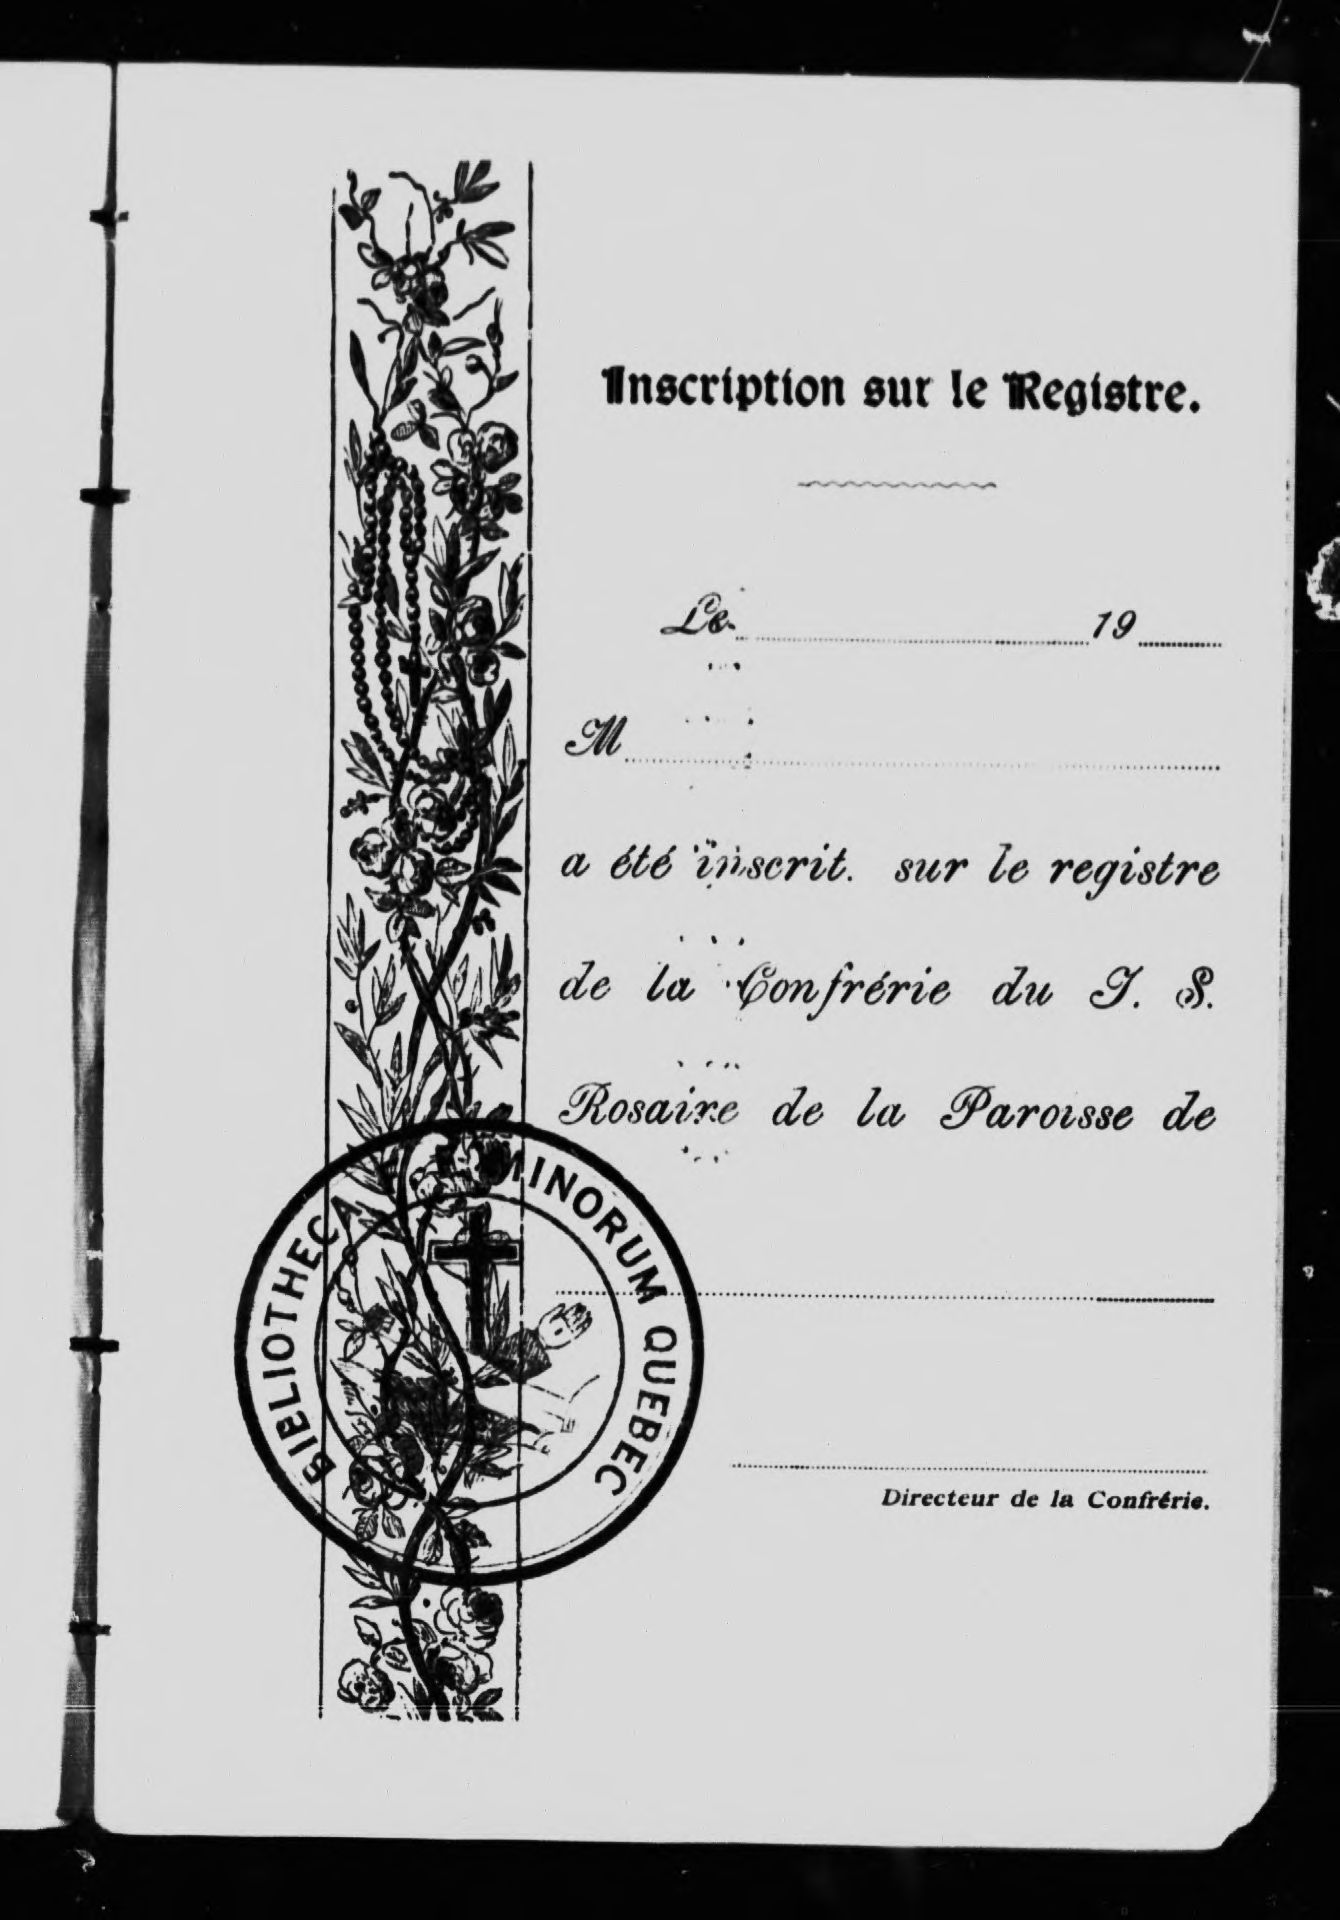 Inscription sur le Registre.
Le 19
M
a été inscrit. sur le registre
de la Confrérie du T. S.
Rosaire de la Paroisse de
Directeur de la Confrérie.
BIBLIOTHEC MINORUM QUEBEC